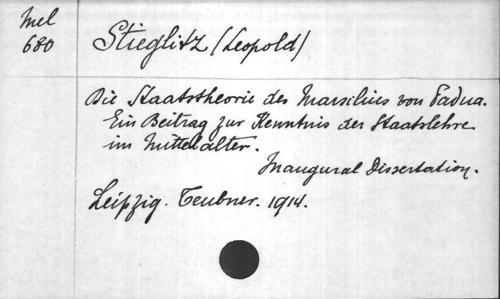 Mel
680
Stieglitz (Leopold)
Die Staatstheorie des Marsilius von Padua.
Ein Beitrag zur Kenntnis der Staatslehre
im Mittelalter.
Inaugural Dissertation.
Leipzig. Teubner. 1914.